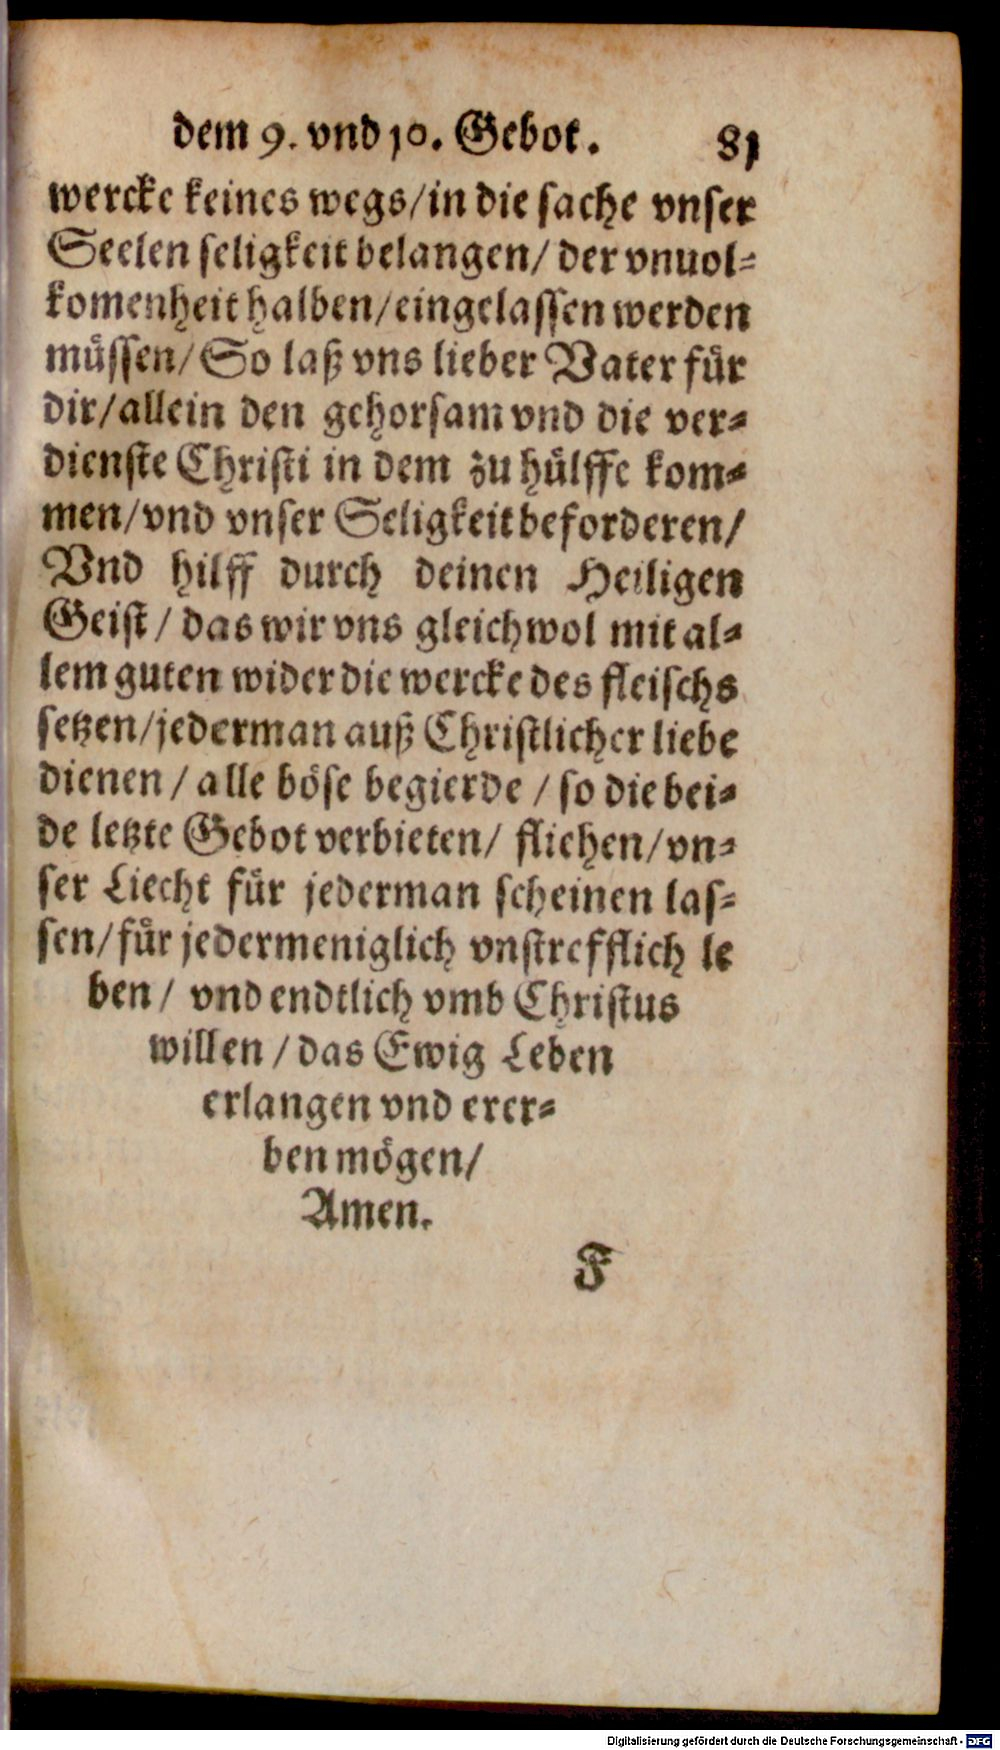 dem 9. vnd 10. Gebot. 81
wercke keines wegs/in die sache vnser
Seelen seligkeit belangen/ der vnuol-
komenheit halben/eingelassen werden
müssen/ So laß vns lieber Vater für
dir/allein den gehorsam vnd die ver-
dienste Christi in dem zu hülffe kom-
men/vnd vnser Seligkeit beforderen/
Vnd hilff durch deinen Heiligen
Geist/ das wir vns gleichwol mit al-
lem guten wider die wercke des fleischs
setzen/jederman auß Christlicher liebe
dienen/ alle böse begierde/ so die bei-
de letzte Gebot verbieten/ fliehen/vn-
ser Liecht für jederman scheinen las-
sen/für jedermeniglich vnstrefflich le
ben/ vnd endtlich vmb Christus
willen/das Ewig Leben
erlangen vnd erer-
ben mögen/
Amen.
F
Digitalisierung gefördert durch die Deutsche Forschungsgemeinschaft - DFG